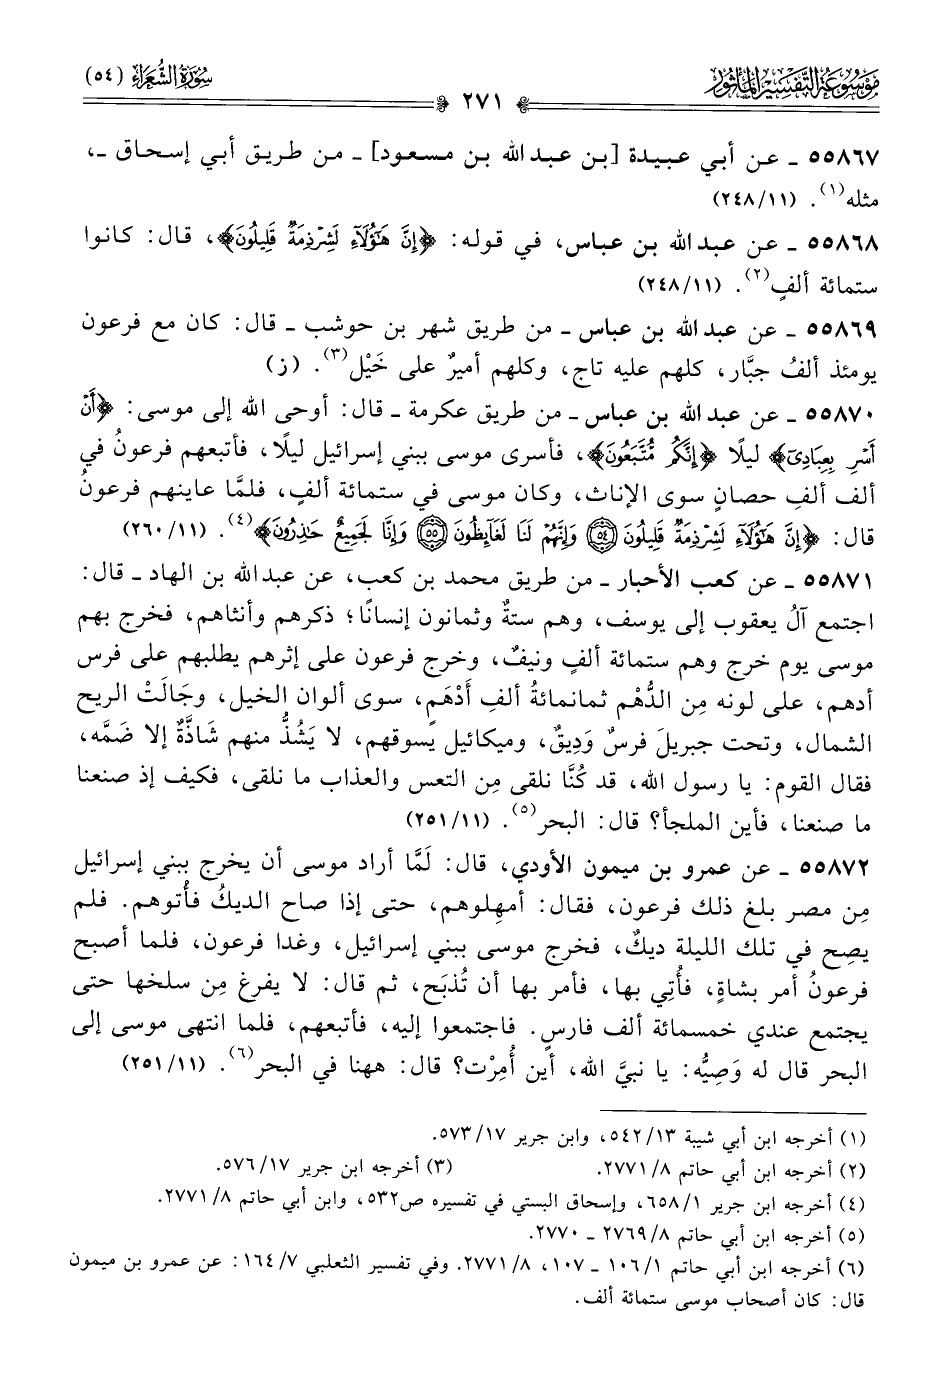 مَوْسُوعَة التَّفْسِيْر المَأْثُور
سُورَةُ الشُّعَرَاء (٥٤)
٢٧١
٥٥٨٦٧ ـ عن أبي عبيدة [بن عبد الله بن مسعود] ـ من طريق أبي إسحاق ـ،
مثله(١). (٢٤٨/١١)
٥٥٨٦٨ ـ عن عبد الله بن عباس، في قوله: ﴿إِنَّ هَٰٓؤُلَآءِ لَشِرْذِمَةٌ قَلِيلُونَ﴾، قال: كانوا
ستمائة ألفٍ(٢). (٢٤٨/١١)
٥٥٨٦٩ ـ عن عبد الله بن عباس ـ من طريق شهر بن حوشب ـ قال: كان مع فرعون
يومئذ ألفُ جبَّار، كلهم عليه تاج، وكلهم أميرٌ على خَيْل(٣). (ز)
٥٥٨٧٠ ـ عن عبد الله بن عباس ـ من طريق عكرمة ـ قال: أوحى الله إلى موسى: ﴿أَنْ
أَسْرِ بِعِبَادِىٓ﴾ ليلًا ﴿إِنَّكُم مُّتَّبَعُونَ﴾، فأسرى موسى ببني إسرائيل ليلًا، فأتبعهم فرعونُ في
ألف ألفِ حصانٍ سوى الإناث، وكان موسى في ستمائة ألفٍ، فلمَّا عاينهم فرعونُ
قال: ﴿إِنَّ هَٰٓؤُلَآءِ لَشِرْذِمَةٌ قَلِيلُونَ ۝٥٤ وَإِنَّهُمْ لَنَا لَغَآئِظُونَ ۝٥٥ وَإِنَّا لَجَمِيعٌ حَٰذِرُونَ﴾(٤). (٢٦٠/١١)
٥٥٨٧١ ـ عن كعب الأحبار ـ من طريق محمد بن كعب، عن عبد الله بن الهاد ـ قال:
اجتمع آلُ يعقوب إلى يوسف، وهم ستةٌ وثمانون إنسانًا؛ ذكرهم وأنثاهم، فخرج بهم
موسى يوم خرج وهم ستمائة ألفٍ ونيفٌ، وخرج فرعون على إثرهم يطلبهم على فرس
أدهم، على لونه مِن الدُّهْم ثمانمائةُ ألفِ أَدْهَمٍ، سوى ألوان الخيل، وجَالَتْ الريح
الشمال، وتحت جبريلَ فرسٌ وَدِيقٌ، وميكائيل يسوقهم، لا يَشُذُّ منهم شاذَّةٌ إلا ضَمَّه،
فقال القوم: يا رسول الله، قد كُنَّا نلقى مِن التعس والعذاب ما نلقى، فكيف إذ صنعنا
ما صنعنا، فأين الملجأ؟ قال: البحر(٥). (٢٥١/١١)
٥٥٨٧٢ ـ عن عمرو بن ميمون الأودي، قال: لَمَّا أراد موسى أن يخرج ببني إسرائيل
مِن مصر بلغ ذلك فرعون، فقال: أمهِلوهم، حتى إذا صاح الديكُ فأْتوهم. فلم
يصِح في تلك الليلة ديكٌ، فخرج موسى ببني إسرائيل، وغدا فرعون، فلما أصبح
فرعونُ أمر بشاةٍ، فأُتِي بها، فأمر بها أن تُذبَح، ثم قال: لا يفرغ مِن سلخها حتى
يجتمع عندي خمسمائة ألف فارسٍ. فاجتمعوا إليه، فأتبعهم، فلما انتهى موسى إلى
البحر قال له وَصِيُّه: يا نبيَّ الله، أين أُمِرْت؟ قال: ههنا في البحر(٦). (٢٥١/١١)
(١) أخرجه ابن أبي شيبة ٥٤٢/١٣، وابن جرير ٥٧٣/١٧.
(٢) أخرجه ابن أبي حاتم ٢٧٧١/٨. (٣) أخرجه ابن جرير ٥٧٦/١٧.
(٤) أخرجه ابن جرير ٦٥٨/١، وإسحاق البستي في تفسيره ص٥٣٢، وابن أبي حاتم ٢٧٧١/٨.
(٥) أخرجه ابن أبي حاتم ٢٧٦٩/٨ ـ ٢٧٧٠.
(٦) أخرجه ابن أبي حاتم ١٠٦/١ ـ ١٠٧، ٢٧٧١/٨. وفي تفسير الثعلبي ١٦٤/٧: عن عمرو بن ميمون
قال: كان أصحاب موسى ستمائة ألف.